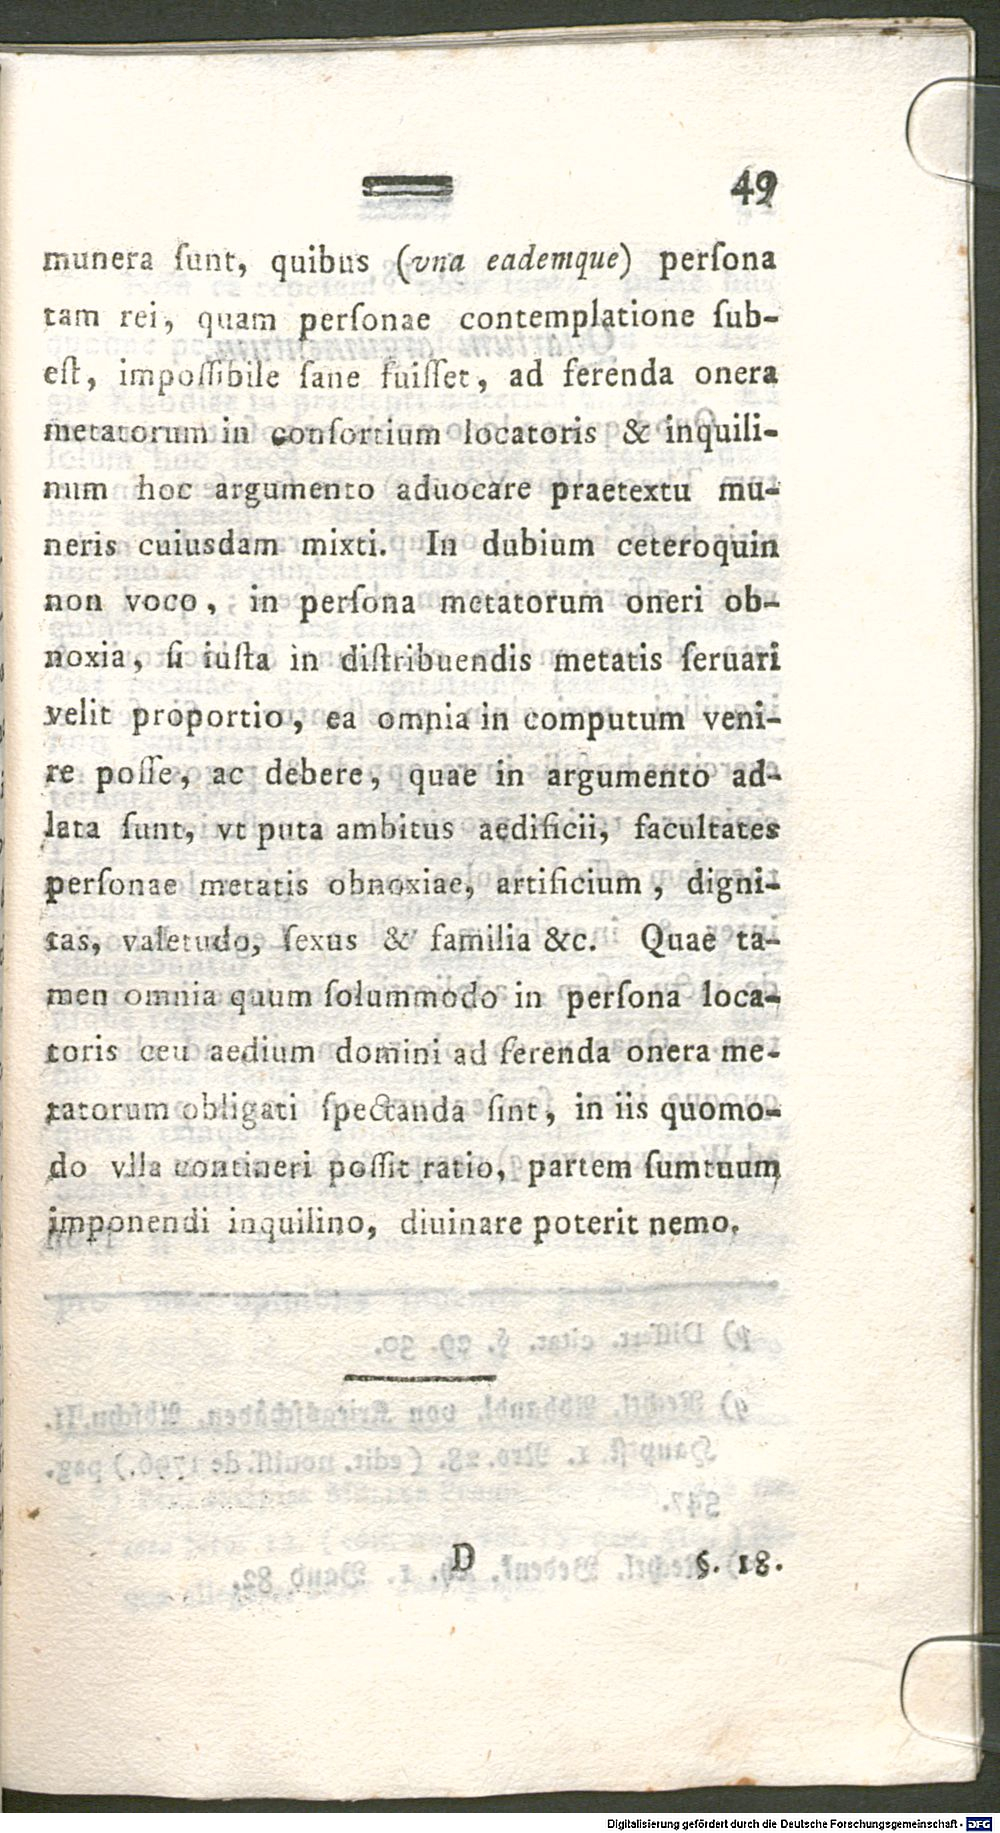 49
munera ſunt, quibus (vna eademque) perſona
tam rei, quam perſonae contemplatione ſub-
eſt, impoſſibile ſane fuiſſet, ad ferenda onera
metatorum in conſortium locatoris & inquili-
num hoc argumento aduocare praetextu mu-
neris cuiusdam mixti. In dubium ceteroquin
non voco, in perſona metatorum oneri ob-
noxia, ſi iuſta in diſtribuendis metatis ſeruari
velit proportio, ea omnia in computum veni-
re poſſe, ac debere, quae in argumento ad-
lata ſunt, vt puta ambitus aedificii, facultates
perſonae metatis obnoxiae, artificium, digni-
tas, valetudo, ſexus & familia &c. Quae ta-
men omnia quum ſolummodo in perſona loca-
toris ceu aedium domini ad ferenda onera me-
tatorum obligati ſpectanda ſint, in iis quomo-
do vlla contineri poſſit ratio, partem ſumtuum
imponendi inquilino, diuinare poterit nemo.
D §. 18.
Digitalisierung gefördert durch die Deutsche Forschungsgemeinschaft - DFG